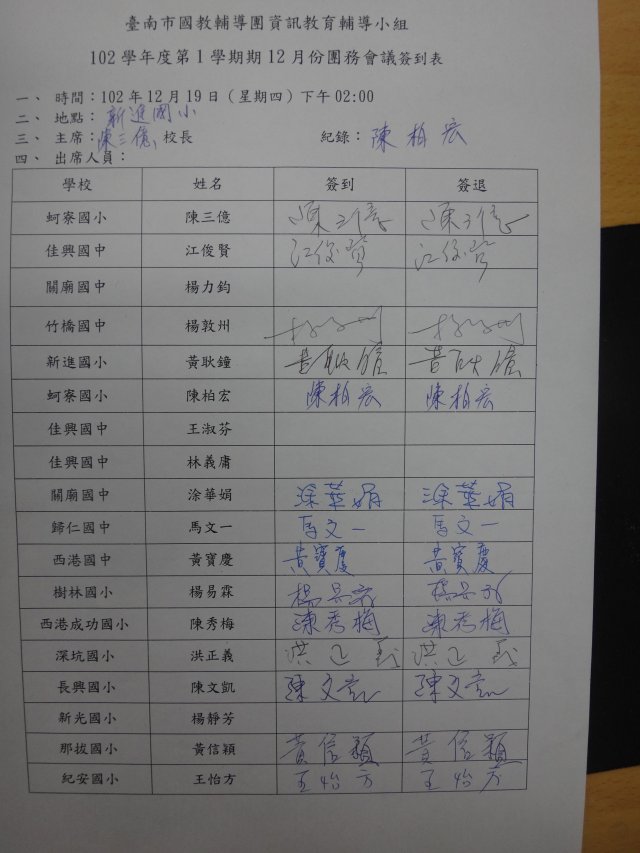 臺南市國教輔導團資訊教育輔導小組
102 學年度第 1 學期期 12 月份團務會議簽到表
一、 時間：102 年 12 月 19 日（星期四）下午 02:00
二、 地點： 新進國小
三、 主席：陳三億 校長 紀錄： 陳柏宏
四、 出席人員：
學校 姓名 簽到 簽退
蚵寮國小 陳三億 陳三億 陳三億
佳興國中 江俊賢 江俊賢 江俊賢
關廟國中 楊力鈞
竹橋國中 楊敦州
新進國小 黃耿鐘 黃耿鐘 黃耿鐘
蚵寮國小 陳柏宏 陳柏宏 陳柏宏
佳興國中 王淑芬
佳興國中 林義庸
關廟國中 涂華娟 涂華娟 涂華娟
歸仁國中 馬文一 馬文一 馬文一
西港國中 黃寶慶 黃寶慶 黃寶慶
樹林國小 楊易霖 楊易霖 楊易霖
西港成功國小 陳秀梅 陳秀梅 陳秀梅
深坑國小 洪正義 洪正義 洪正義
長興國小 陳文凱 陳文凱 陳文凱
新光國小 楊靜芳
那拔國小 黃信穎 黃信穎 黃信穎
紀安國小 王怡方 王怡方 王怡方